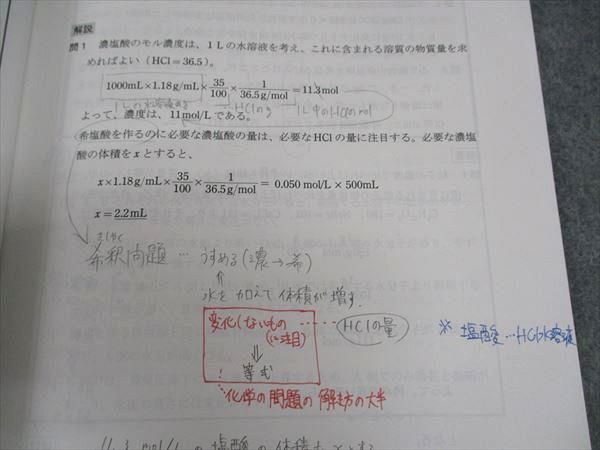 解説
問1 濃塩酸のモル濃度は、1Lの水溶液を考え、これに含まれる溶質の物質量を求
めればよい（HCl＝36.5）。
1000mL×1.18g/mL×35/100×1/36.5g/mol＝11.3mol
1Lの水溶液のg HClのg 1L中のHClのmol
よって、濃度は、11mol/Lである。
希塩酸を作るのに必要な濃塩酸の量は、必要なHClの量に注目する。必要な濃塩
酸の体積をxとすると、
x×1.18g/mL×35/100×1/36.5g/mol＝0.050mol/L×500mL
x＝2.2mL
きしゃく
希釈問題 … うすめる（濃→希）
↑
水を加えて体積が増す.
変化しないもの …… HClの量
（に注目）
⇓
! 等式
※ 塩酸…HCl水溶液
化学の問題の解き方の大半
の塩酸の体積を